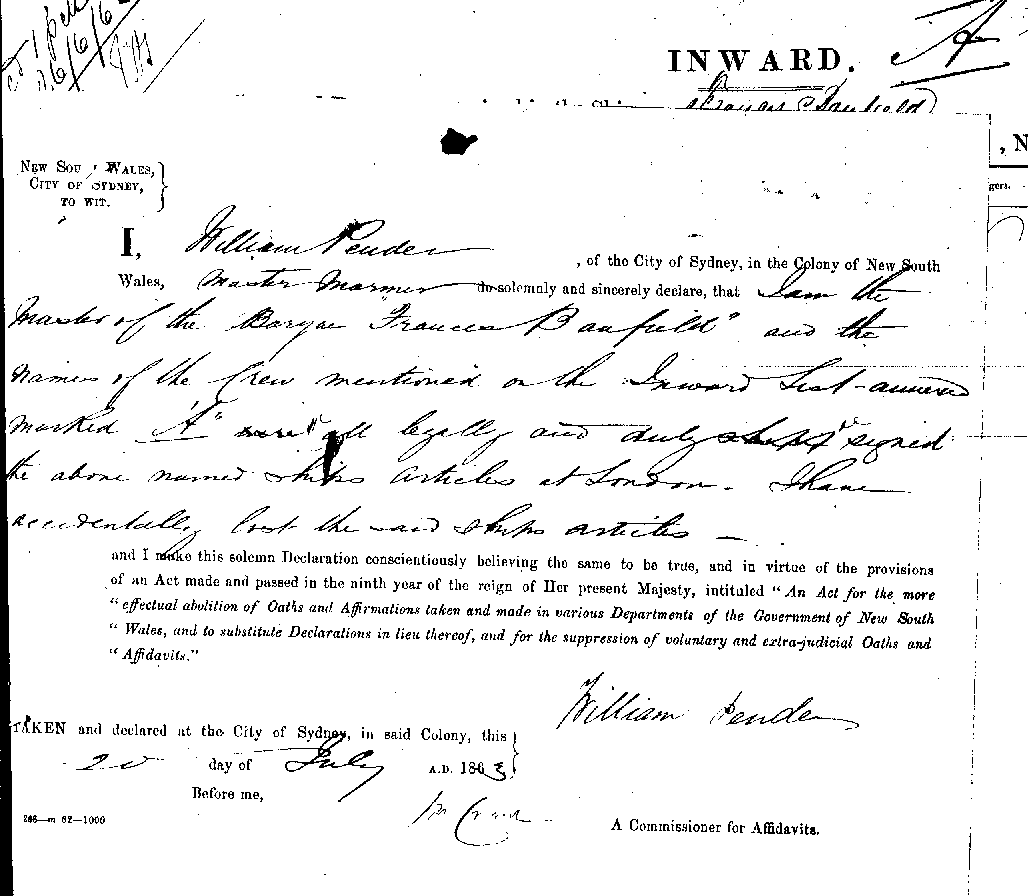 INWARD. A
, N
gers.
NEW SOU WALES,
CITY OF SYDNEY,
TO WIT.
I, William Pender, of the City of Sydney, in the Colony of New South
Wales, Master Mariner do solemnly and sincerely declare, that I am the
Master of the Barque "Frances Banfield" and the
names of the Crew mentioned on the Inward List annexed
marked "A" were all legally and duly signed
the above named ships articles at London. I have
accidentally lost the said ships articles —
and I make this solemn Declaration conscientiously believing the same to be true, and in virtue of the provisions
of an Act made and passed in the ninth year of the reign of Her present Majesty, intituled "An Act for the more
"effectual abolition of Oaths and Affirmations taken and made in various Departments of the Government of New South
"Wales, and to substitute Declarations in lieu thereof, and for the suppression of voluntary and extra-judicial Oaths and
"Affidavits."
William Pender
TAKEN and declared at the City of Sydney, in said Colony, this
20 day of July A.D. 1863
Before me,
266—m 62—1000
A Commissioner for Affidavits.